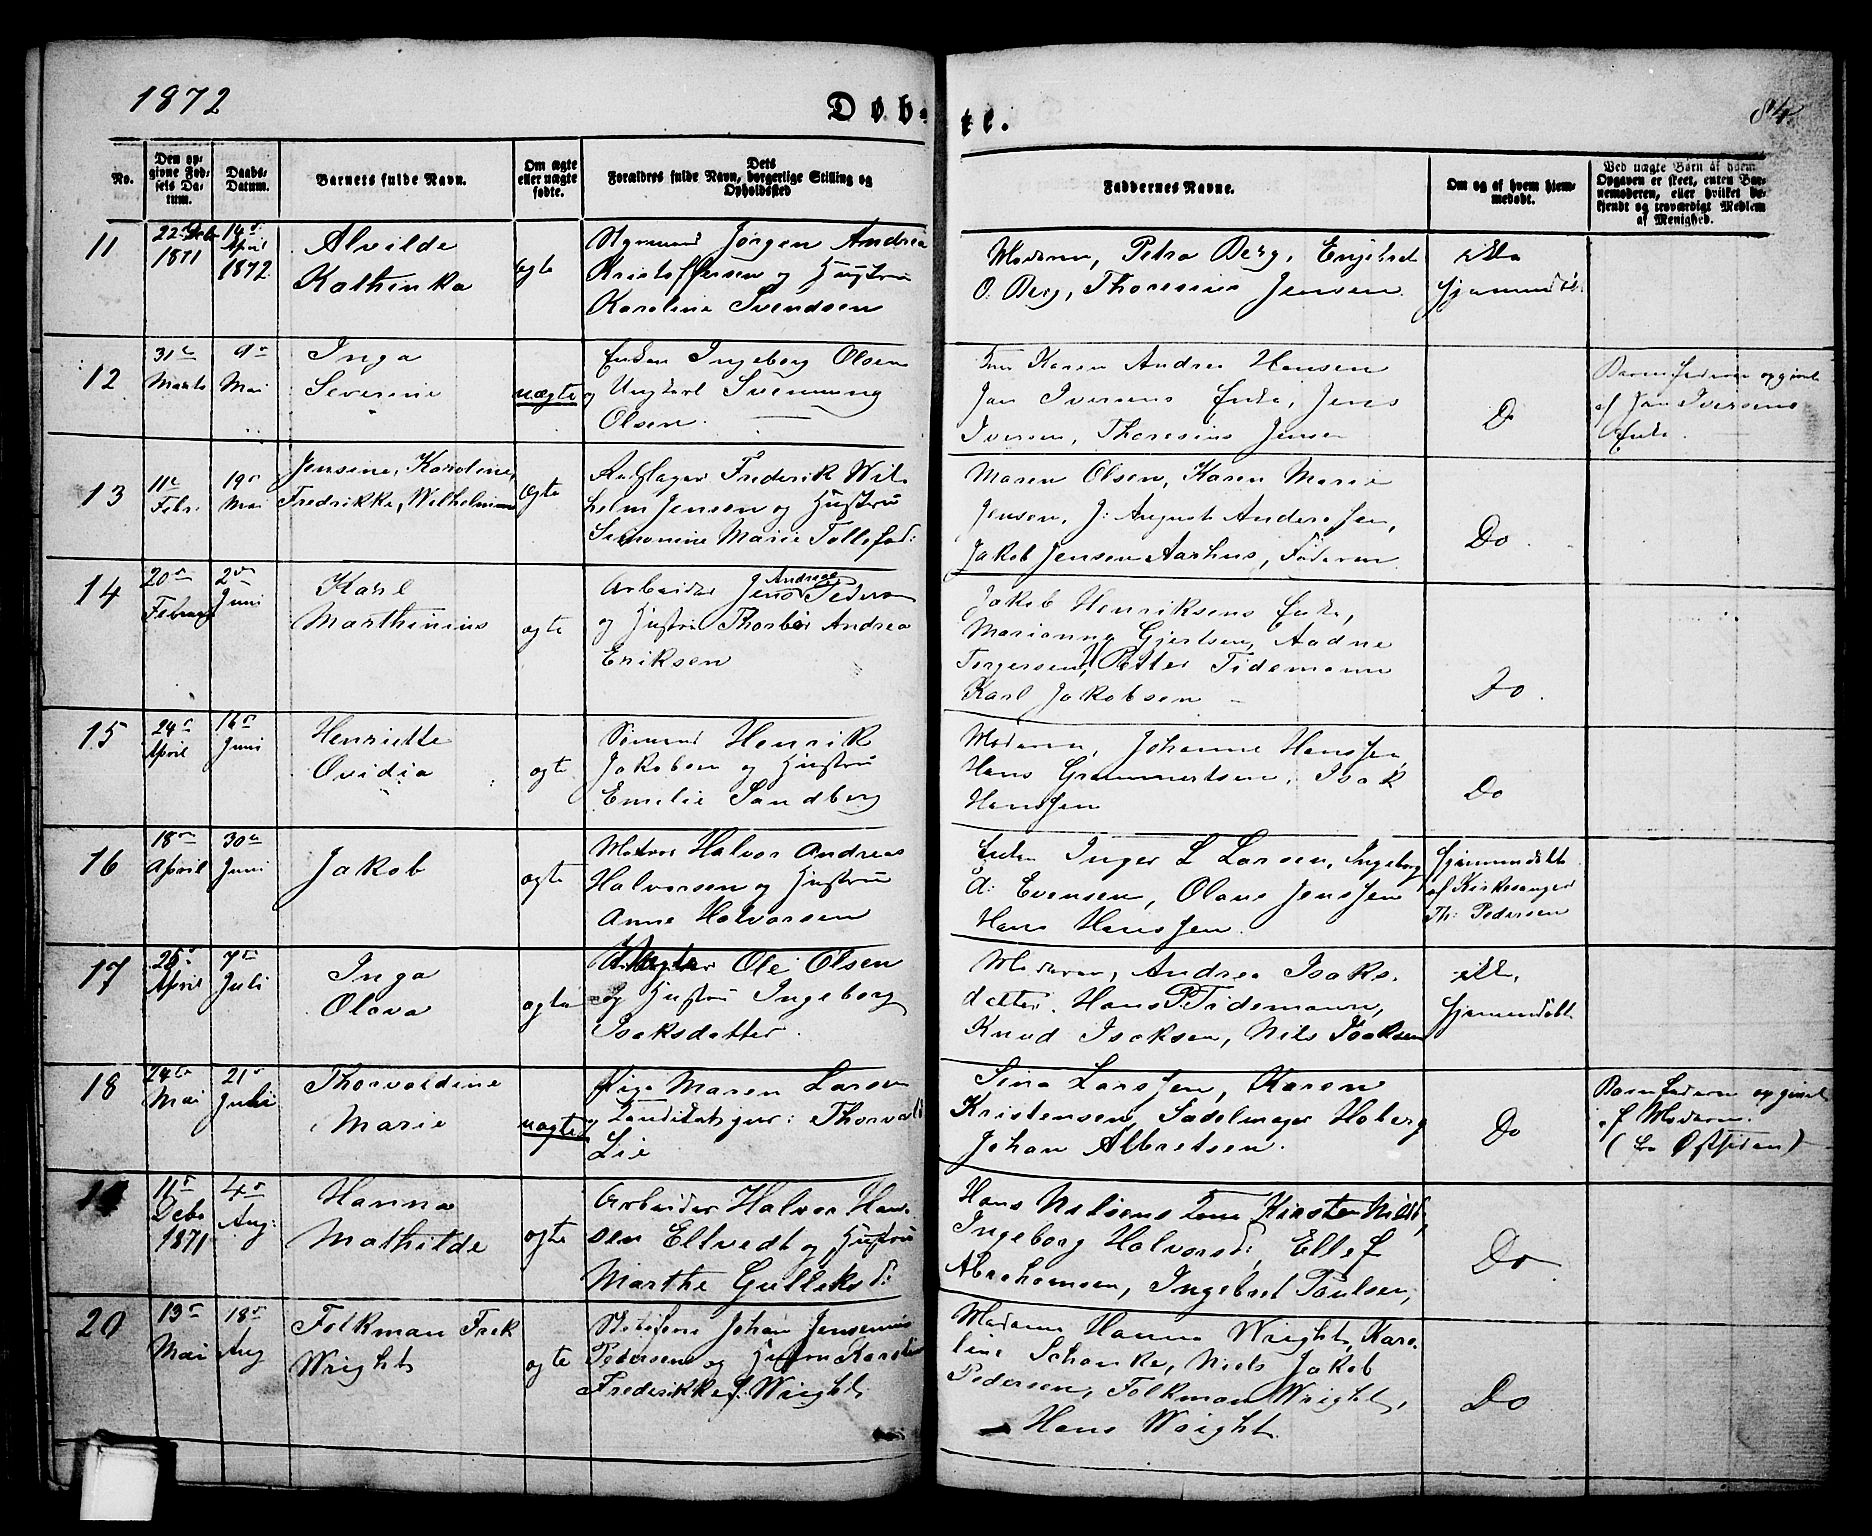 1872
Døb-
te.
84
No.
Den op-
givne Fød-
sels Da-
tum.
Daabs-
Datum.
Barnets fulde Navn.
Om ægte
eller uægte
fødte.
Dets
Forældres fulde Navn, borgerlige Stilling og
Opholdssted
Faddernes Navne.
Om og af hvem hjem-
medøbt.
Ved uægte Børn af hvem
Opgaven er skeet, enten Bar-
nemoderen, eller hvilket be-
kjendt og troværdigt Medlem
af Menighed.
11
22 Feb
1871
14
April
1872
Alvilde
Kathinka
ægte
Jørgen Andrea
Kristoffersen og Hustru
Karoline Svendsen
Moderen, Petra Berg, Engebret
O. Berg, Thoresius Jensen
ikke
hjemmedøbt
12
31
Marts
9
Mai
Inga
Severine
uægte
Enken Ingeborg Olsen
og Ungkarl Svennung
Olsen.
Karen Andrea Hansen
Jan Iversens Enke, Jens
Iversen, Thoresius Jensen
Do
Barnefaderen opgivet
af Jan Iversens
Enke.
13
11
Febr
19
Mai
Jensine, Karoline,
Fredrikke, Wilhelmine
ægte
Frederik Wil-
helm Jensen og Hustru
Simonine Marie Tollefsd:
Maren Olsen, Karen Marie
Jensen, J. August Andersen,
Jakob Jensen Aarhus, Faderen
Do
14
20
Februar
2
Juni
Karl
Marthinius
ægte
Arbeider Jens Andreas Pedersen
og Hustru Thorbør Andrea
Eriksen
Jakob Henriksens Enke,
Marianne Gjertsen, Aadne
Torgersen, Petter Tidemann
Karl Jakobsen
Do.
15
24
April
16
Juni
Henriette
Ovidia
ægte
Sømand Henrik
Jakobsen og Hustru
Emilie Sandberg
Moderen, Johanne Hanssen,
Hans Grammertsen, Isak
Hanssen
Do
16
18
April
30
Juni
Jakob
ægte
Matros Halvor Andreas
Halvorsen og Hustru
Anne Halvorsen
Enken Inger L Larsen, Ingeborg
A: Evensen, Olaus Jenssen
Hans Hanssen.
hjemmedøbt
af Kirkesanger
Th: Pedersen
17
April
7
Juli
Inga
Olava
ægte
Ole Olsen
og Hustru Ingeborg
Isaksdatter.
Moderen, Andrea Isaks-
datter, Hans P. Tidemann,
Knud Isaksen, Nils Isaksen
ikke
hjemmedøbt
18
24
Mai
21
Juli
Thorvaldine
Marie
uægte
Pige Maren Larsen
og Kandidat jur: Thorvald
Lie
Sina Larssen, Karen
Kristensen, Sadelmager Hoberg
Johan Albretsen.
Do
Barnefaderen opgivet
af Moderen.
(Østsiden)
19
11
Debr
1871
4
Aug:
Hanna
Mathilde
ægte
Arbeider Halvor Han-
sen Eltvedt og Hustru
Marthe Gulleksd:
Hans Nilsens Kone Kirsten Nilsd,
Ingeborg Halvorsd:, Ellef
Abrahamsen, Ingebret Paulsen,
Do
20
13
Mai
18
Aug
Folkman Frek
Wright
ægte
Johan Jensenius
Pedersen og Hustru Karoline
Frederikke f. Wright
Madame Hanna Wright, Karo-
line Schanke, Niels Jakob
Pedersen, Folkman Wright,
Hans Wright
Do